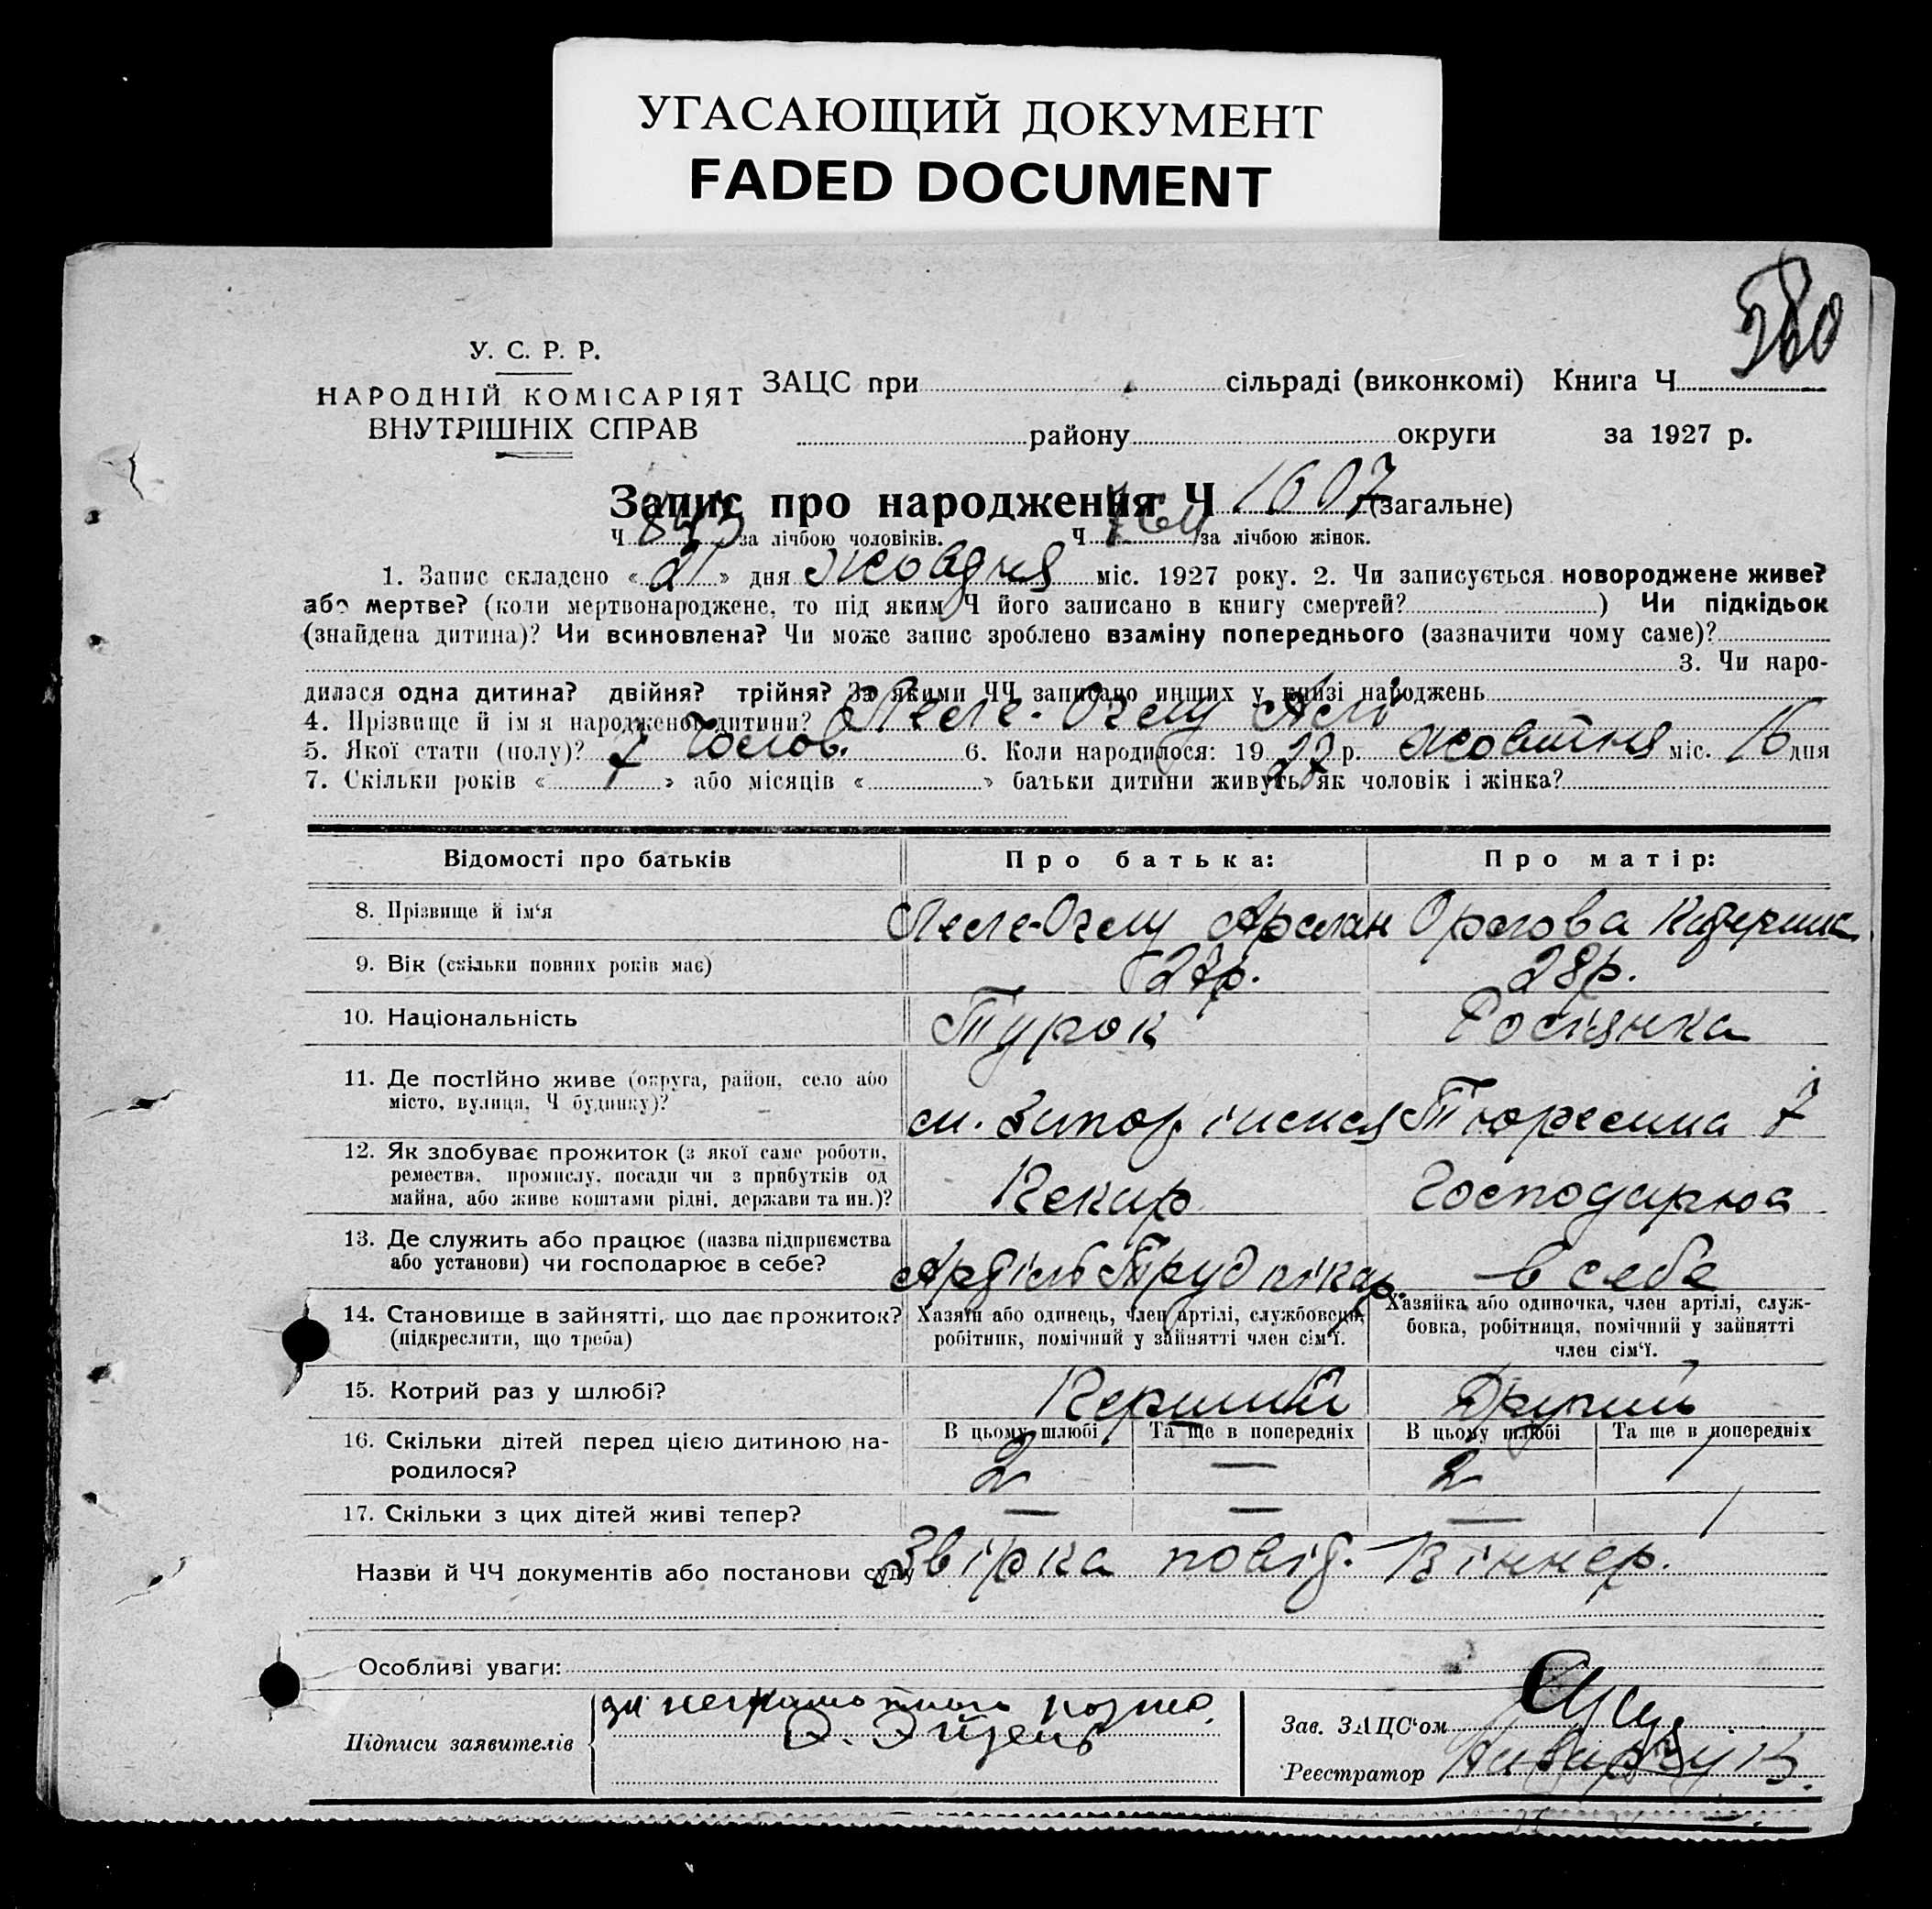 УГАСАЮЩИЙ ДОКУМЕНТ
FADED DOCUMENT
580
У. С. Р. Р.
НАРОДНІЙ КОМІСАРІЯТ
ВНУТРІШНІХ СПРАВ
ЗАЦС при сільраді (виконкомі) Книга Ч
району округи за 1927 р.
Запис про народження Ч 1607 (загальне)
Ч 843 за лічбою чоловіків. Ч 764 за лічбою жінок.
1. Запис складено « 21 » дня Жовдня міс. 1927 року. 2. Чи записується новороджене живе?
або мертве? (коли мертвонароджене, то під яким Ч його записано в книгу смертей? ) Чи підкідьок
(знайдена дитина)? Чи всиновлена? Чи може запис зроблено взаміну попереднього (зазначити чому саме)?
3. Чи наро-
дилася одна дитина? двійня? трійня? За якими ЧЧ записано инших у книзі народжень
4. Прізвище й ім я народженої дитини? Огли Алі
5. Якої стати (полу)? Чолов. 6. Коли народилося: 19 27 р. Жовтня міс. 16 дня
7. Скільки років « 7 » або місяців « » батьки дитини живуть як чоловік і жінка?
Відомості про батьків
Про батька:
Про матір:
8. Прізвище й ім'я
Арслан
Орлова
9. Вік (скільки повних років має)
27р.
28р.
10. Національність
Турок
Росіянка
11. Де постійно живе (округа, район, село або
місто, вулиця, Ч будинку)?
м. 7
12. Як здобуває прожиток (з якої саме роботи,
ремества, промислу, посади чи з прибутків од
майна, або живе коштами рідні, держави та ин.)?
Пекар
Господарює
13. Де служить або працює (назва підприємства
або установи) чи господарює в себе?
Артіль Труд пікар.
в себе
14. Становище в зайнятті, що дає прожиток?
(підкреслити, що треба)
Хазяїн або одинець, член артілі, службовець,
робітник, помічний у зайнятті член сім'ї.
Хазяйка або одиночка, член артілі, служ-
бовка, робітниця, помічний у зайнятті
член сім'ї.
15. Котрий раз у шлюбі?
Перший
Другий
16. Скільки дітей перед цією дитиною на-
родилося?
В цьому шлюбі
Та ще в попередніх
В цьому шлюбі
Та ще в попередніх
2 — 2 1
17. Скільки з цих дітей живі тепер?
— — — 1
Назви й ЧЧ документів або постанови суду Звірка повід.
Особливі уваги:
Підписи заявителів
за
Зав. ЗАЦС'ом
Реєстратор